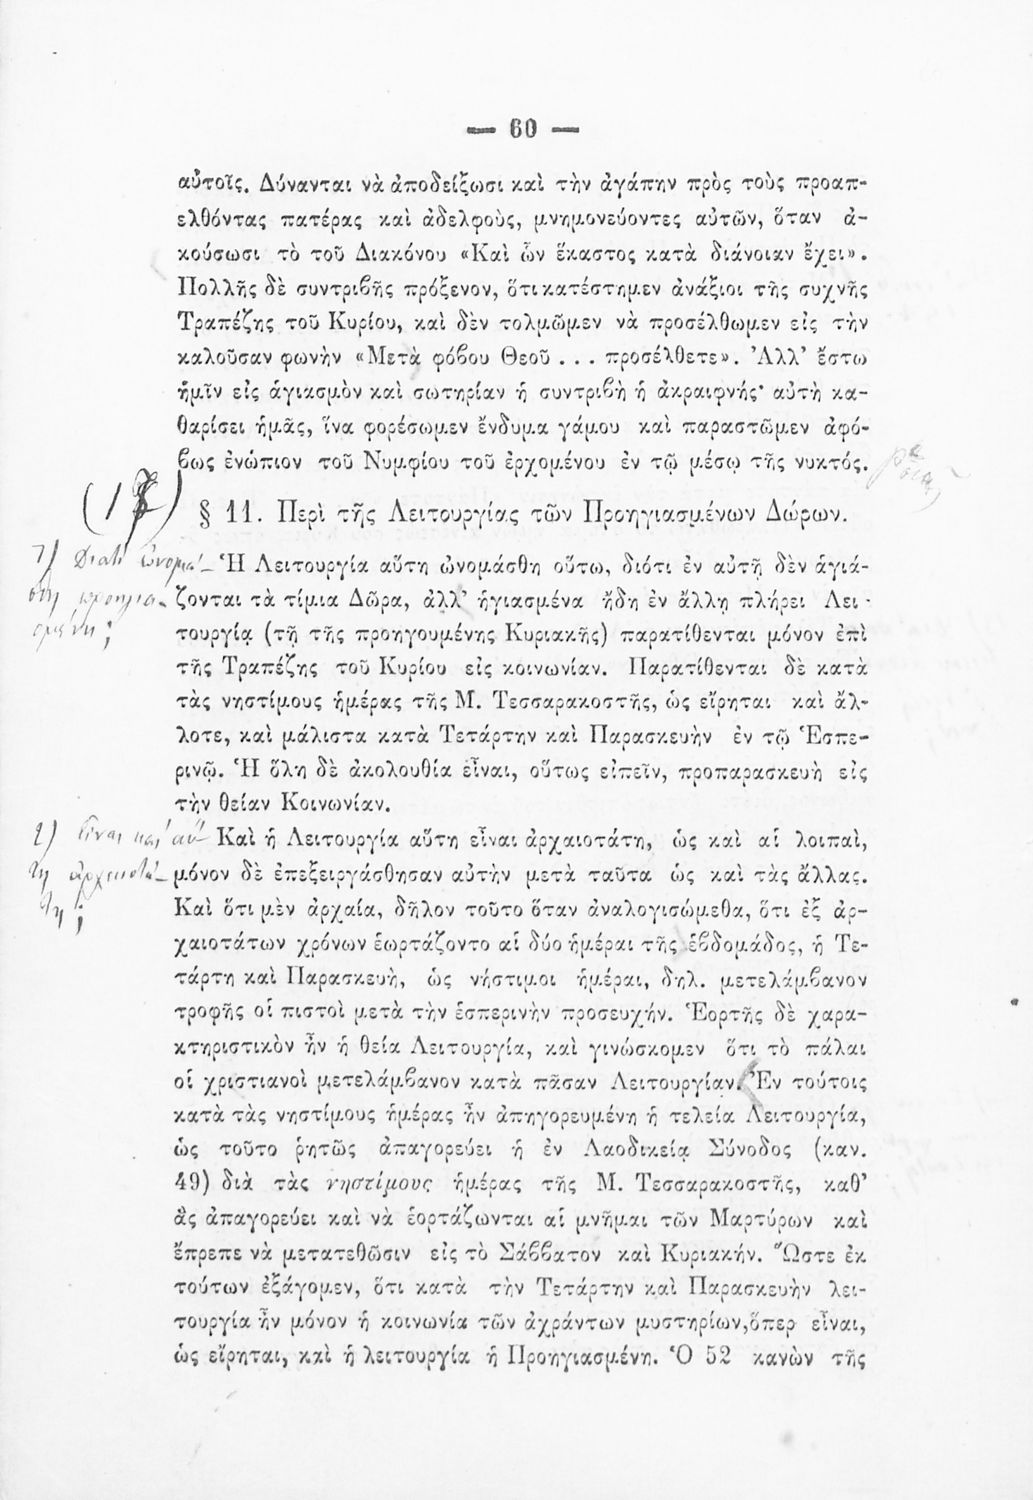 — 60 —
αὐτοῖς. Δύνανται νὰ ἀποδείξωσι καὶ τὴν ἀγάπην πρὸς τοὺς προαπ-
ελθόντας πατέρας καὶ ἀδελφοὺς, μνημονεύοντες αὐτῶν, ὅταν ἀ-
κούσωσι τὸ τοῦ Διακόνου «Καὶ ὧν ἕκαστος κατὰ διάνοιαν ἔχει».
Πολλῆς δὲ συντριβῆς πρόξενον, ὅτι κατέστημεν ἀνάξιοι τῆς συχνῆς
Τραπέζης τοῦ Κυρίου, καὶ δὲν τολμῶμεν νὰ προσέλθωμεν εἰς τὴν
καλοῦσαν φωνὴν «Μετὰ φόβου Θεοῦ . . . προσέλθετε». Ἀλλ' ἔστω
ἡμῖν εἰς ἁγιασμὸν καὶ σωτηρίαν ἡ συντριβὴ ἡ ἀκραιφνής· αὐτὴ κα-
θαρίσει ἡμᾶς, ἵνα φορέσωμεν ἔνδυμα γάμου καὶ παραστῶμεν ἀφό-
βως ἐνώπιον τοῦ Νυμφίου τοῦ ἐρχομένου ἐν τῷ μέσῳ τῆς νυκτός.
§ 11. Περὶ τῆς Λειτουργίας τῶν Προηγιασμένων Δώρων.
1) Διατί ὠνομά-
σθη προηγια-
σμένη;
Ἡ Λειτουργία αὕτη ὠνομάσθη οὕτω, διότι ἐν αὐτῇ δὲν ἁγιά-
ζονται τὰ τίμια Δῶρα, ἀλλ' ἡγιασμένα ἤδη ἐν ἄλλῃ πλήρει Λει-
τουργίᾳ (τῇ τῆς προηγουμένης Κυριακῆς) παρατίθενται μόνον ἐπὶ
τῆς Τραπέζης τοῦ Κυρίου εἰς κοινωνίαν. Παρατίθενται δὲ κατὰ
τὰς νηστίμους ἡμέρας τῆς Μ. Τεσσαρακοστῆς, ὡς εἴρηται καὶ ἄλ-
λοτε, καὶ μάλιστα κατὰ Τετάρτην καὶ Παρασκευὴν ἐν τῷ Ἑσπε-
ρινῷ. Ἡ ὅλη δὲ ἀκολουθία εἶναι, οὕτως εἰπεῖν, προπαρασκευὴ εἰς
τὴν θείαν Κοινωνίαν.
2) Εἶναι καὶ αὕ-
τη ἀρχαιοτά-
τη;
Καὶ ἡ Λειτουργία αὕτη εἶναι ἀρχαιοτάτη, ὡς καὶ αἱ λοιπαὶ,
μόνον δὲ ἐπεξειργάσθησαν αὐτὴν μετὰ ταῦτα ὡς καὶ τὰς ἄλλας.
Καὶ ὅτι μὲν ἀρχαία, δῆλον τοῦτο ὅταν ἀναλογισώμεθα, ὅτι ἐξ ἀρ-
χαιοτάτων χρόνων ἑωρτάζοντο αἱ δύο ἡμέραι τῆς ἑβδομάδος, ἡ Τε-
τάρτη καὶ Παρασκευὴ, ὡς νήστιμοι ἡμέραι, δηλ. μετελάμβανον
τροφῆς οἱ πιστοὶ μετὰ τὴν ἑσπερινὴν προσευχήν. Ἑορτῆς δὲ χαρα-
κτηριστικὸν ἦν ἡ θεία Λειτουργία, καὶ γινώσκομεν ὅτι τὸ πάλαι
οἱ χριστιανοὶ μετελάμβανον κατὰ πᾶσαν Λειτουργίαν. Ἐν τούτοις
κατὰ τὰς νηστίμους ἡμέρας ἦν ἀπηγορευμένη ἡ τελεία Λειτουργία,
ὡς τοῦτο ῥητῶς ἀπαγορεύει ἡ ἐν Λαοδικείᾳ Σύνοδος (καν.
49) διὰ τὰς νηστίμους ἡμέρας τῆς Μ. Τεσσαρακοστῆς, καθ'
ἃς ἀπαγορεύει καὶ νὰ ἑορτάζωνται αἱ μνῆμαι τῶν Μαρτύρων καὶ
ἔπρεπε νὰ μετατεθῶσιν εἰς τὸ Σάββατον καὶ Κυριακήν. Ὥστε ἐκ
τούτων ἐξάγομεν, ὅτι κατὰ τὴν Τετάρτην καὶ Παρασκευὴν λει-
τουργία ἦν μόνον ἡ κοινωνία τῶν ἀχράντων μυστηρίων, ὅπερ εἶναι,
ὡς εἴρηται, καὶ ἡ λειτουργία ἡ Προηγιασμένη. Ὁ 52 κανὼν τῆς